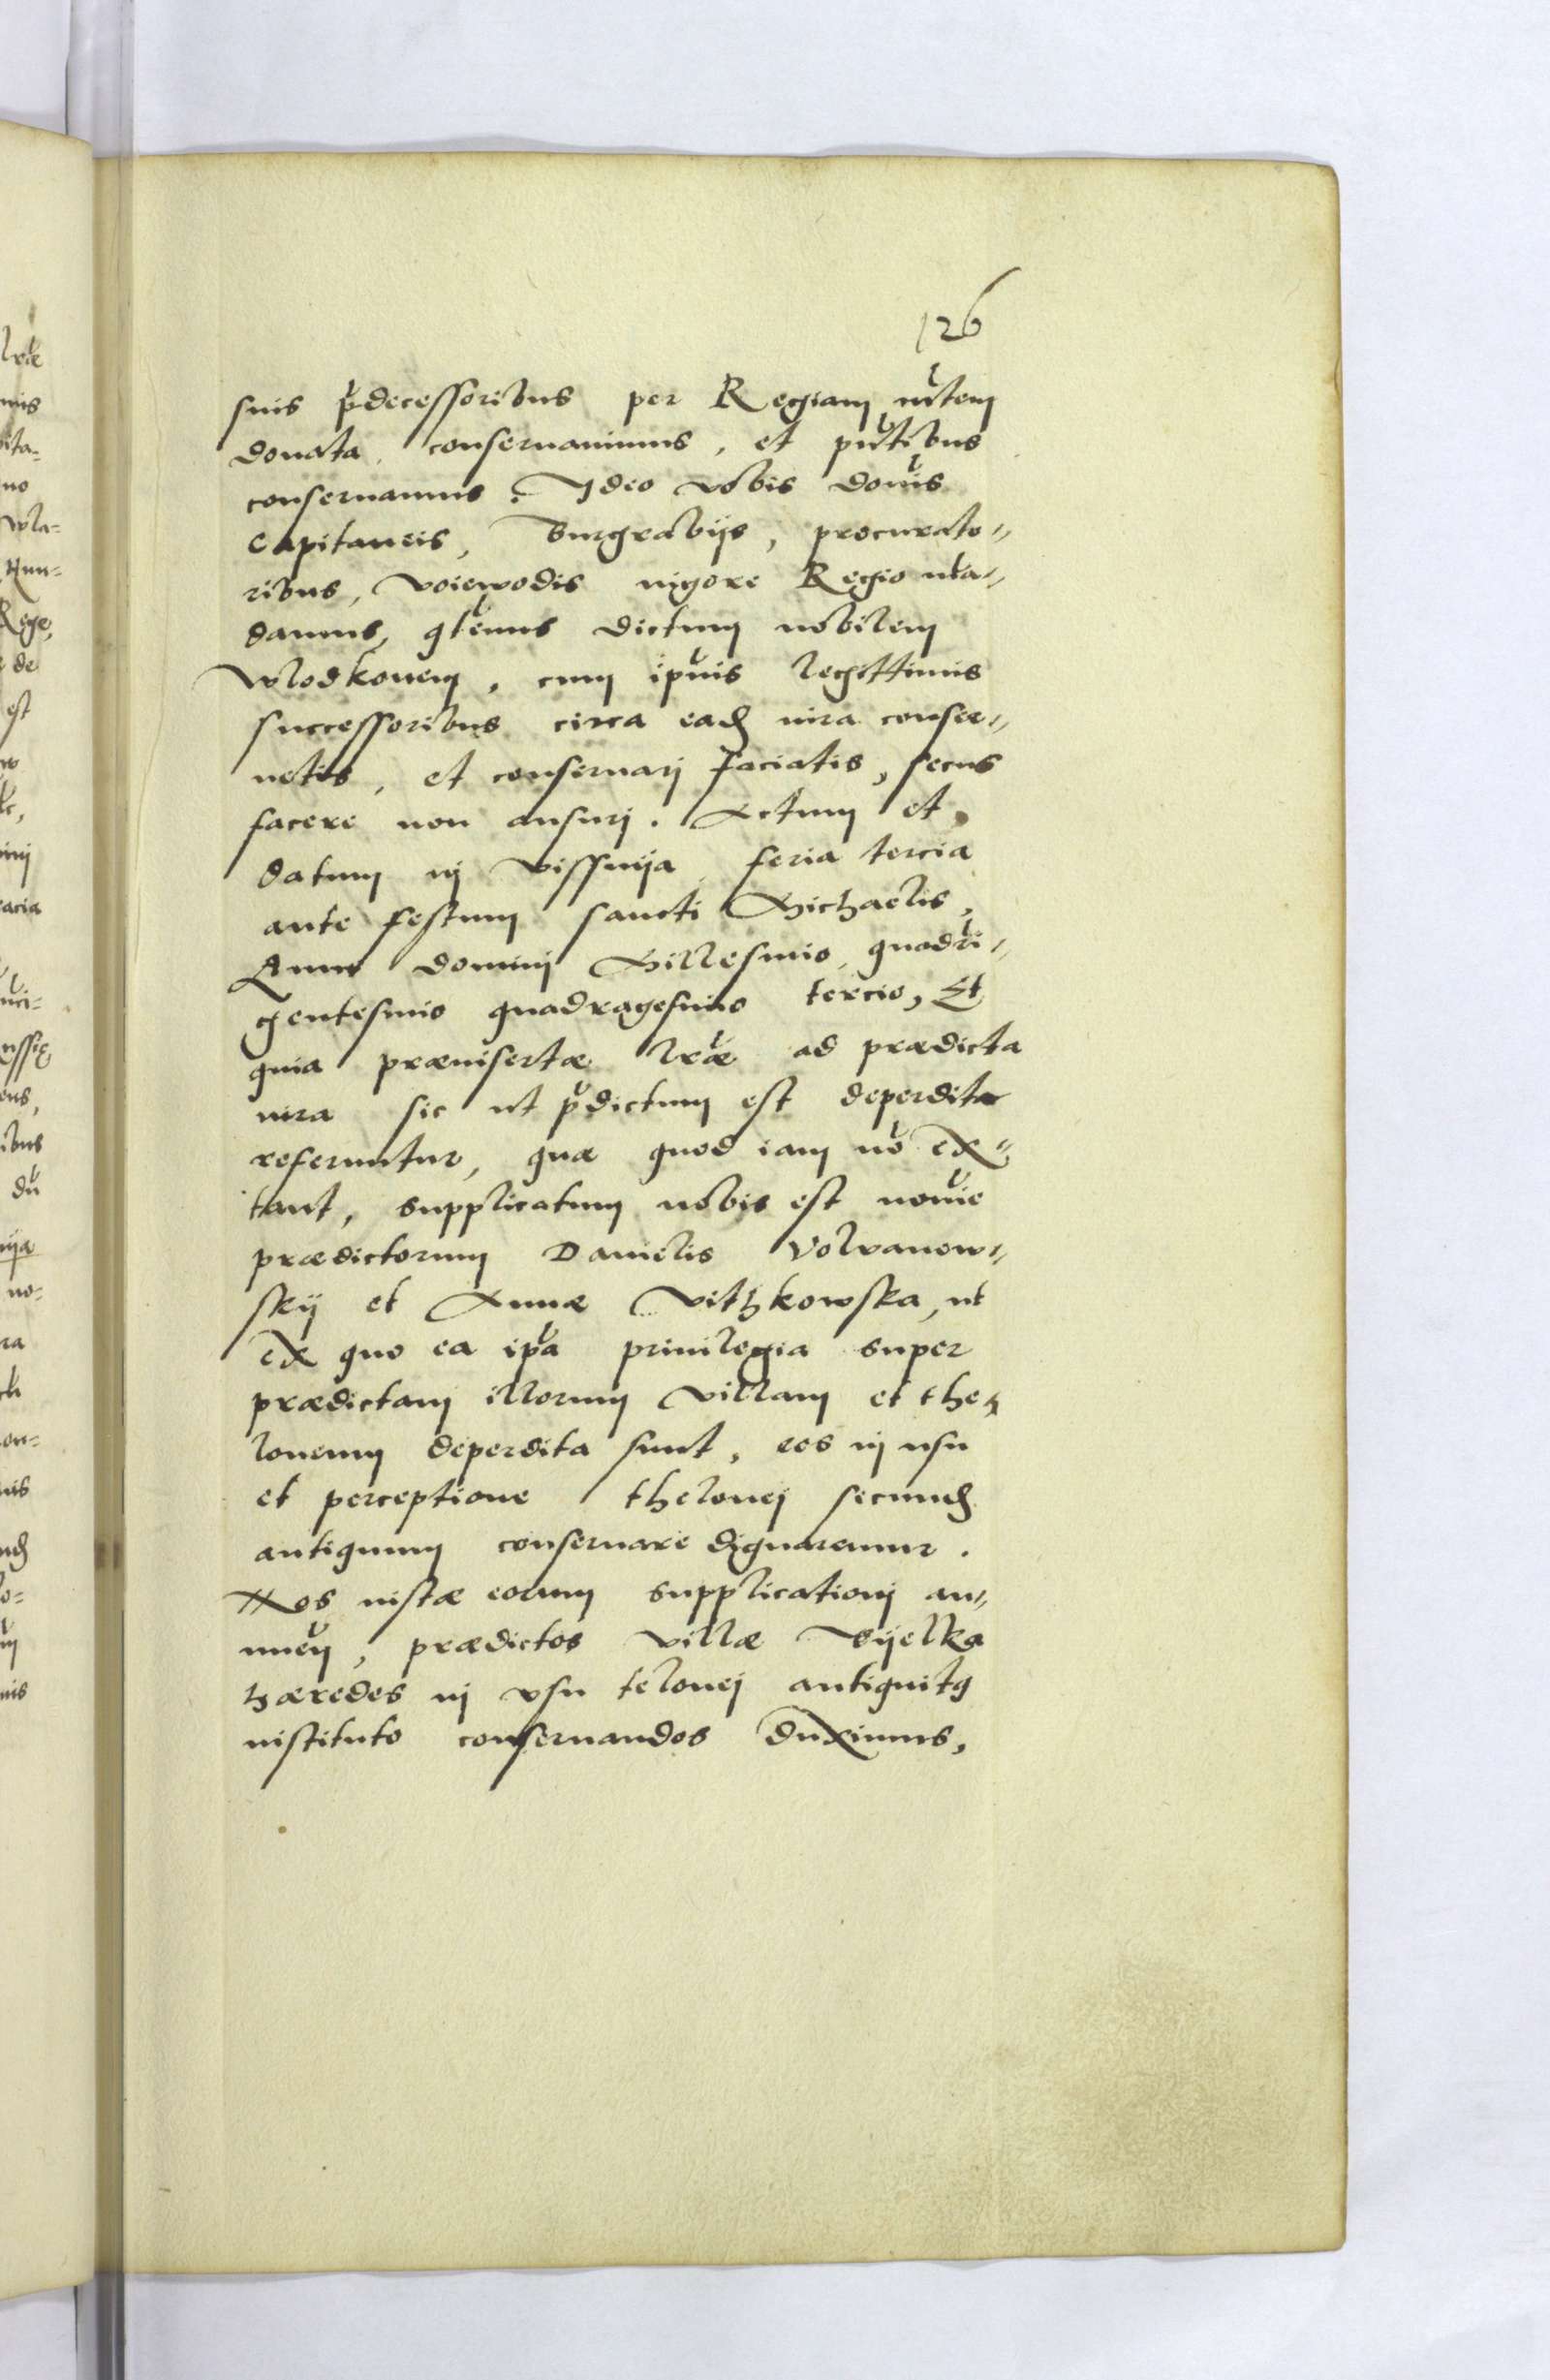 126
suis p̃decessoribus per Regiam mr̃tem
donata conseruauimus, et pñtibus
conseruamus. Ideo vobis dom̃is
Capitaneis, Burgrabijs, procurato-
ribus, voiewodis uigore Regio mã-
damus, qtẽnus dictum nobilem
Wlodkonem, cum ip̃uis legittimis
successoribus circa ead iura conser-
uetis, et conseruarj faciatis, secus
facere non ausurj. Actum et
datum in Vissnija feria tercia
ante festum sancti Michaelis,
Anno dominj Millesimo quadri-
gentesimo quadragesimo tercio, Et
quia præinsertæ lr̃æ ad prædicta
iura sic ut p̃dictum est deperdita
referuntur, quæ quod iam nõ ex-
tant, supplicatum nobis est noĩe
prædictorum Danielis Volranow-
skij et Annæ Vithkowska, ut
ex quo ea ip̃a priuilegia super
prædictam illorum villam et the-
loneum deperdita sunt, eos in usu
et perceptione thelonej secund
antiquum conseruare dignaremur.
Nos iustæ eorum supplicationj an-
nuen̄, prædictos villæ Wijelka
hæredes in vsu telonej antiquitq
instituto conseruandos duximus,
lræ
mis
ita-
no
Wla-
Rege,
de
est
acia
uci-
ens,
ibus
dũ
nija
no-
ra
on-
uis
lo-
mis